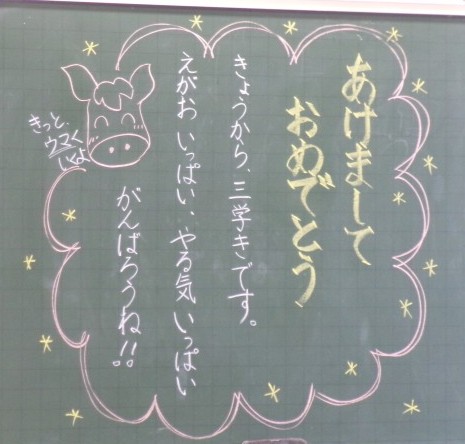 あけまして
おめでとう
きょうから、三学きです。
えがお いっぱい、やる気 いっぱい
がんばろうね!!
きっと、
ウマく
いくよ